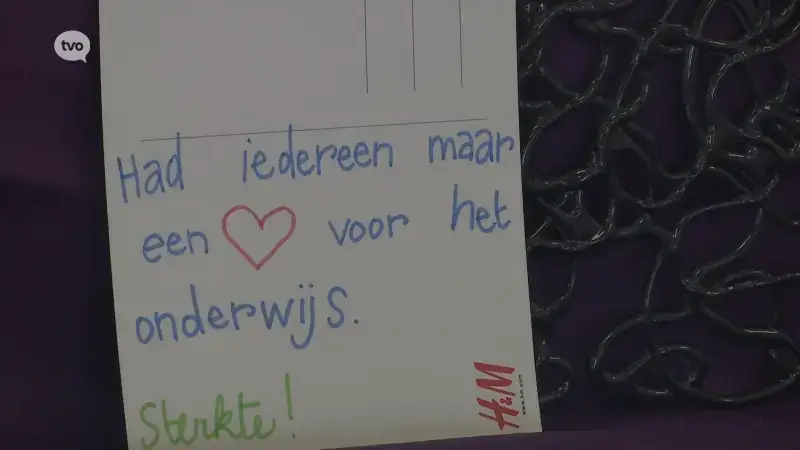 tvo
Had iedereen maar
een ♡ voor het
onderwijs.
Sterkte!
H&M
www.hm.com